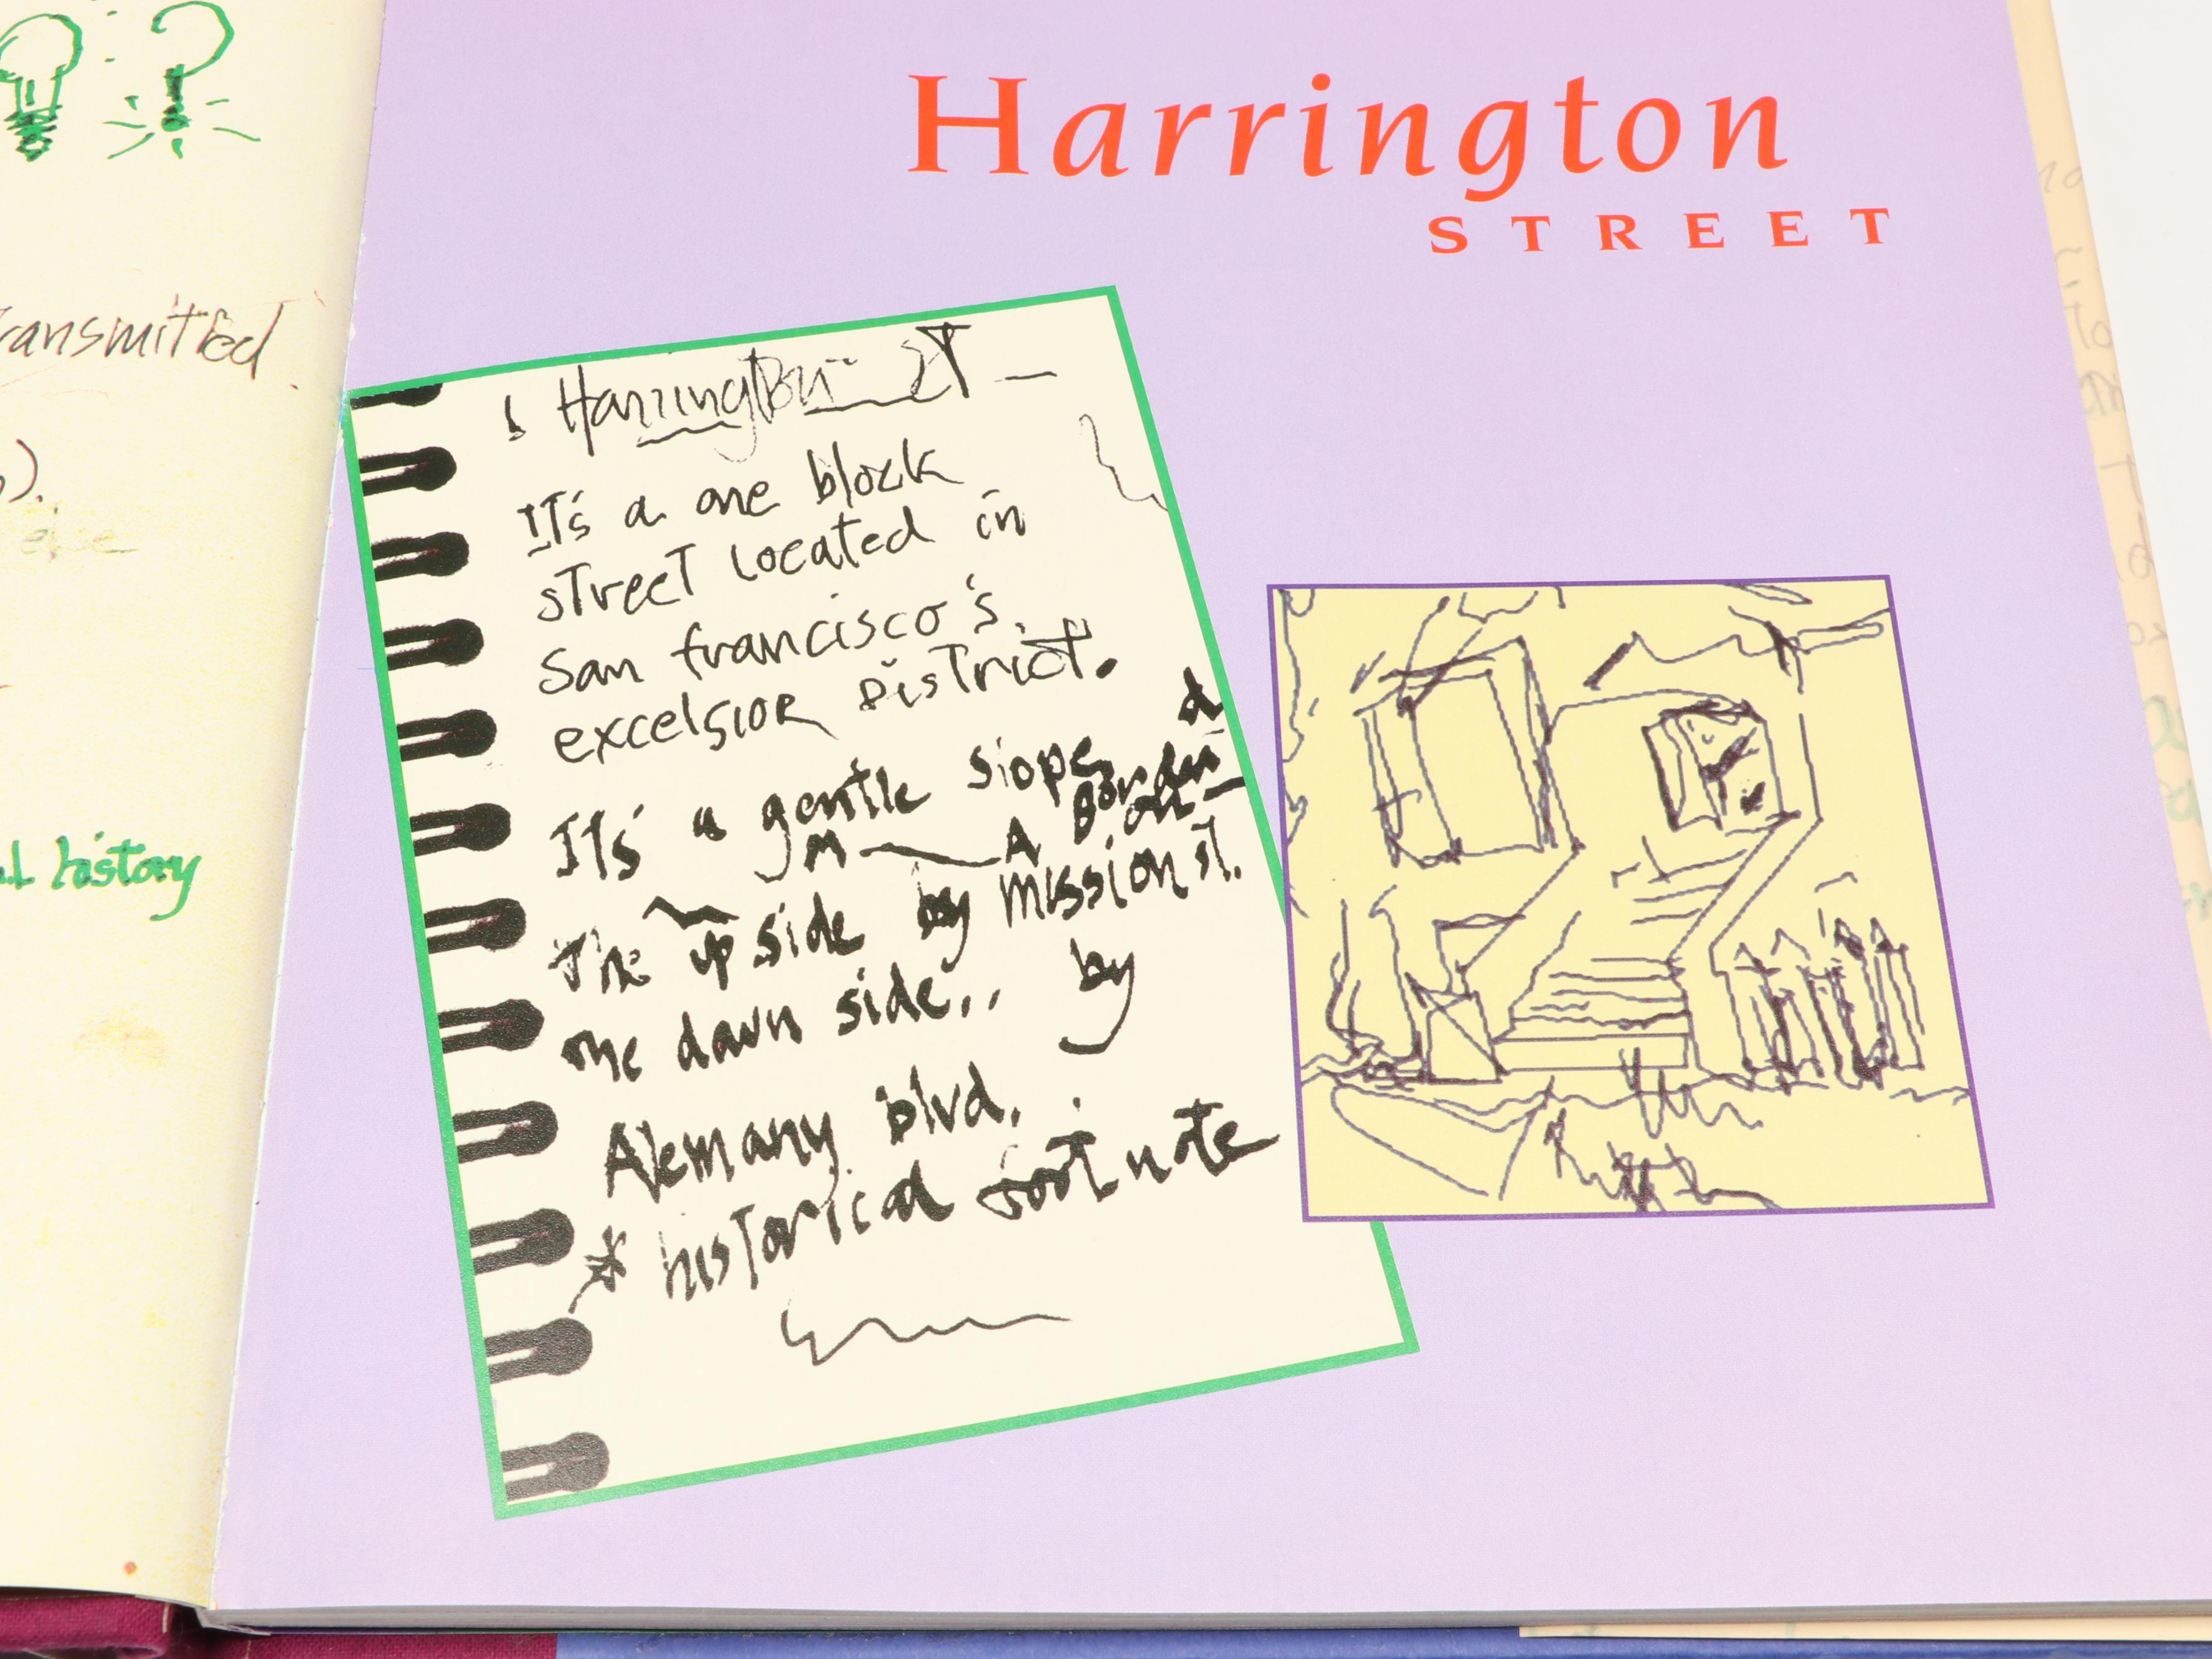 ransmitted.
).
else
l history
Harrington
STREET
Harrington ST —
It's a one block
street located in
San francisco's
excelsior District.
It's a gentle slope,
A garden
The up side by mission st.
the down side.. by
Alemany blvd.
* historical footnote